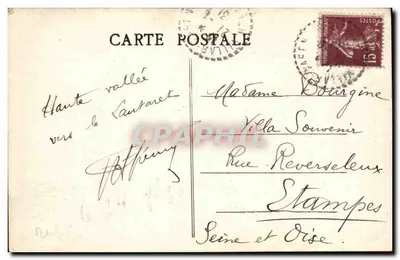 CARTE POSTALE
Haute vallée
vers le Lautaret
Madame Bourgine
Villa Souvenir
Rue Reverseleux
Etampes
Seine et Oise.